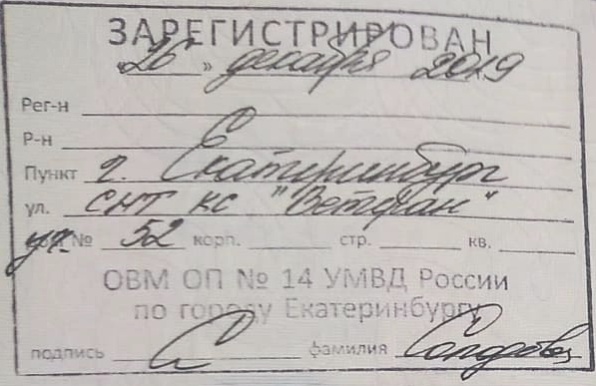 ЗАРЕГИСТРИРОВАН
"26" декабря 2019
Рег-н
Р-н
Пункт г. Екатеринбург
ул. СНТ КС "Ветфан"
уч. № 52 корп. стр. кв.
ОВМ ОП № 14 УМВД России
по городу Екатеринбургу
подпись фамилия